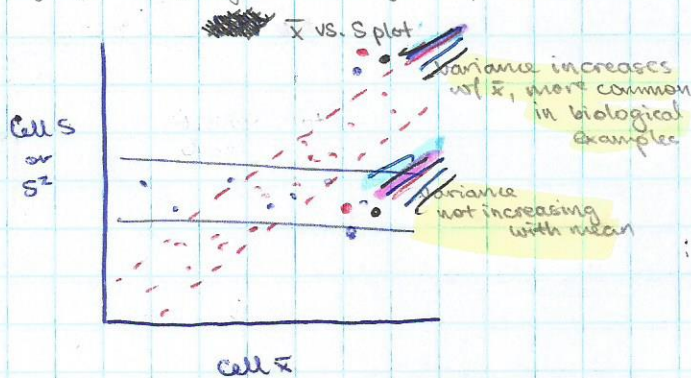 x̄ vs. S plot
variance increases
w/ x̄, more common
in biological
examples
Cell S
or
S²
variance
not increasing
with mean
Cell x̄